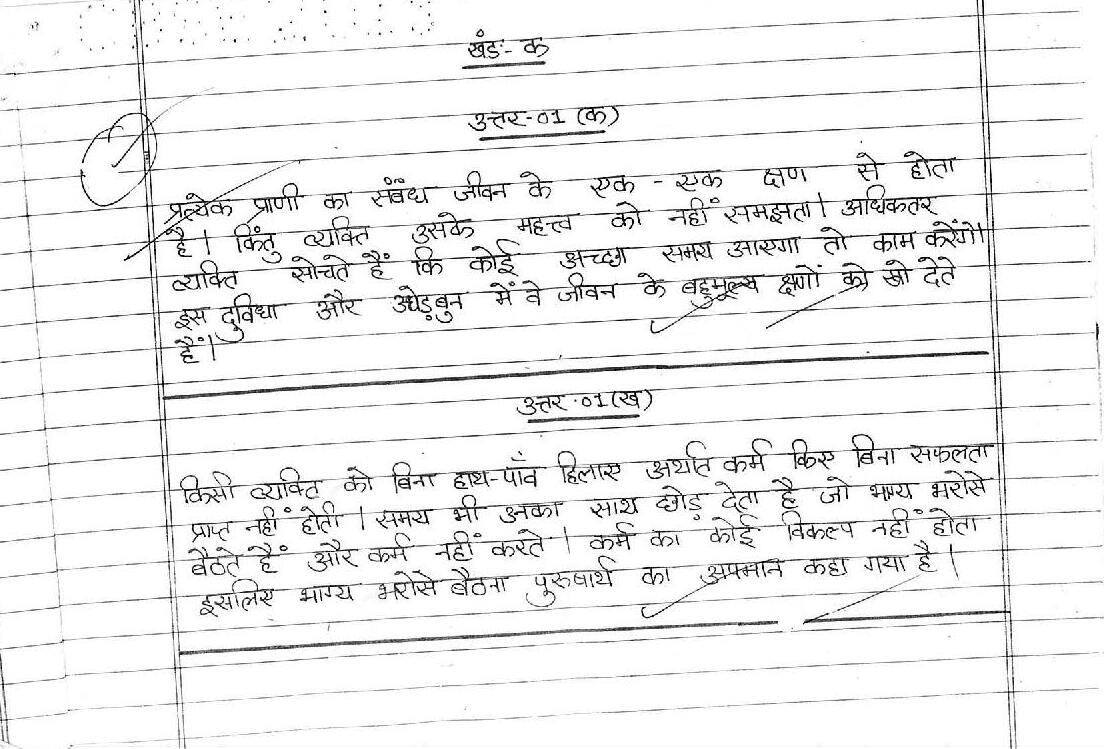 खंड-क
उत्तर-01 (क)
प्रत्येक प्राणी का संबंध जीवन के एक-एक क्षण से होता
है। किंतु व्यक्ति उसके महत्त्व को नहीं समझता। अधिकतर
व्यक्ति सोचते हैं कि कोई अच्छा समय आएगा तो काम करेंगे।
इस दुविधा और उधेड़बुन में वे जीवन के बहुमूल्य क्षणों को खो देते
हैं।
उत्तर-01(ख)
किसी व्यक्ति को बिना हाथ-पाँव हिलाए अर्थात कर्म किए बिना सफलता
प्राप्त नहीं होती। समय भी उनका साथ छोड़ देता है जो भाग्य भरोसे
बैठते हैं और कर्म नहीं करते। कर्म का कोई विकल्प नहीं होता
इसलिए भाग्य भरोसे बैठना पुरुषार्थ का अपमान कहा गया है।